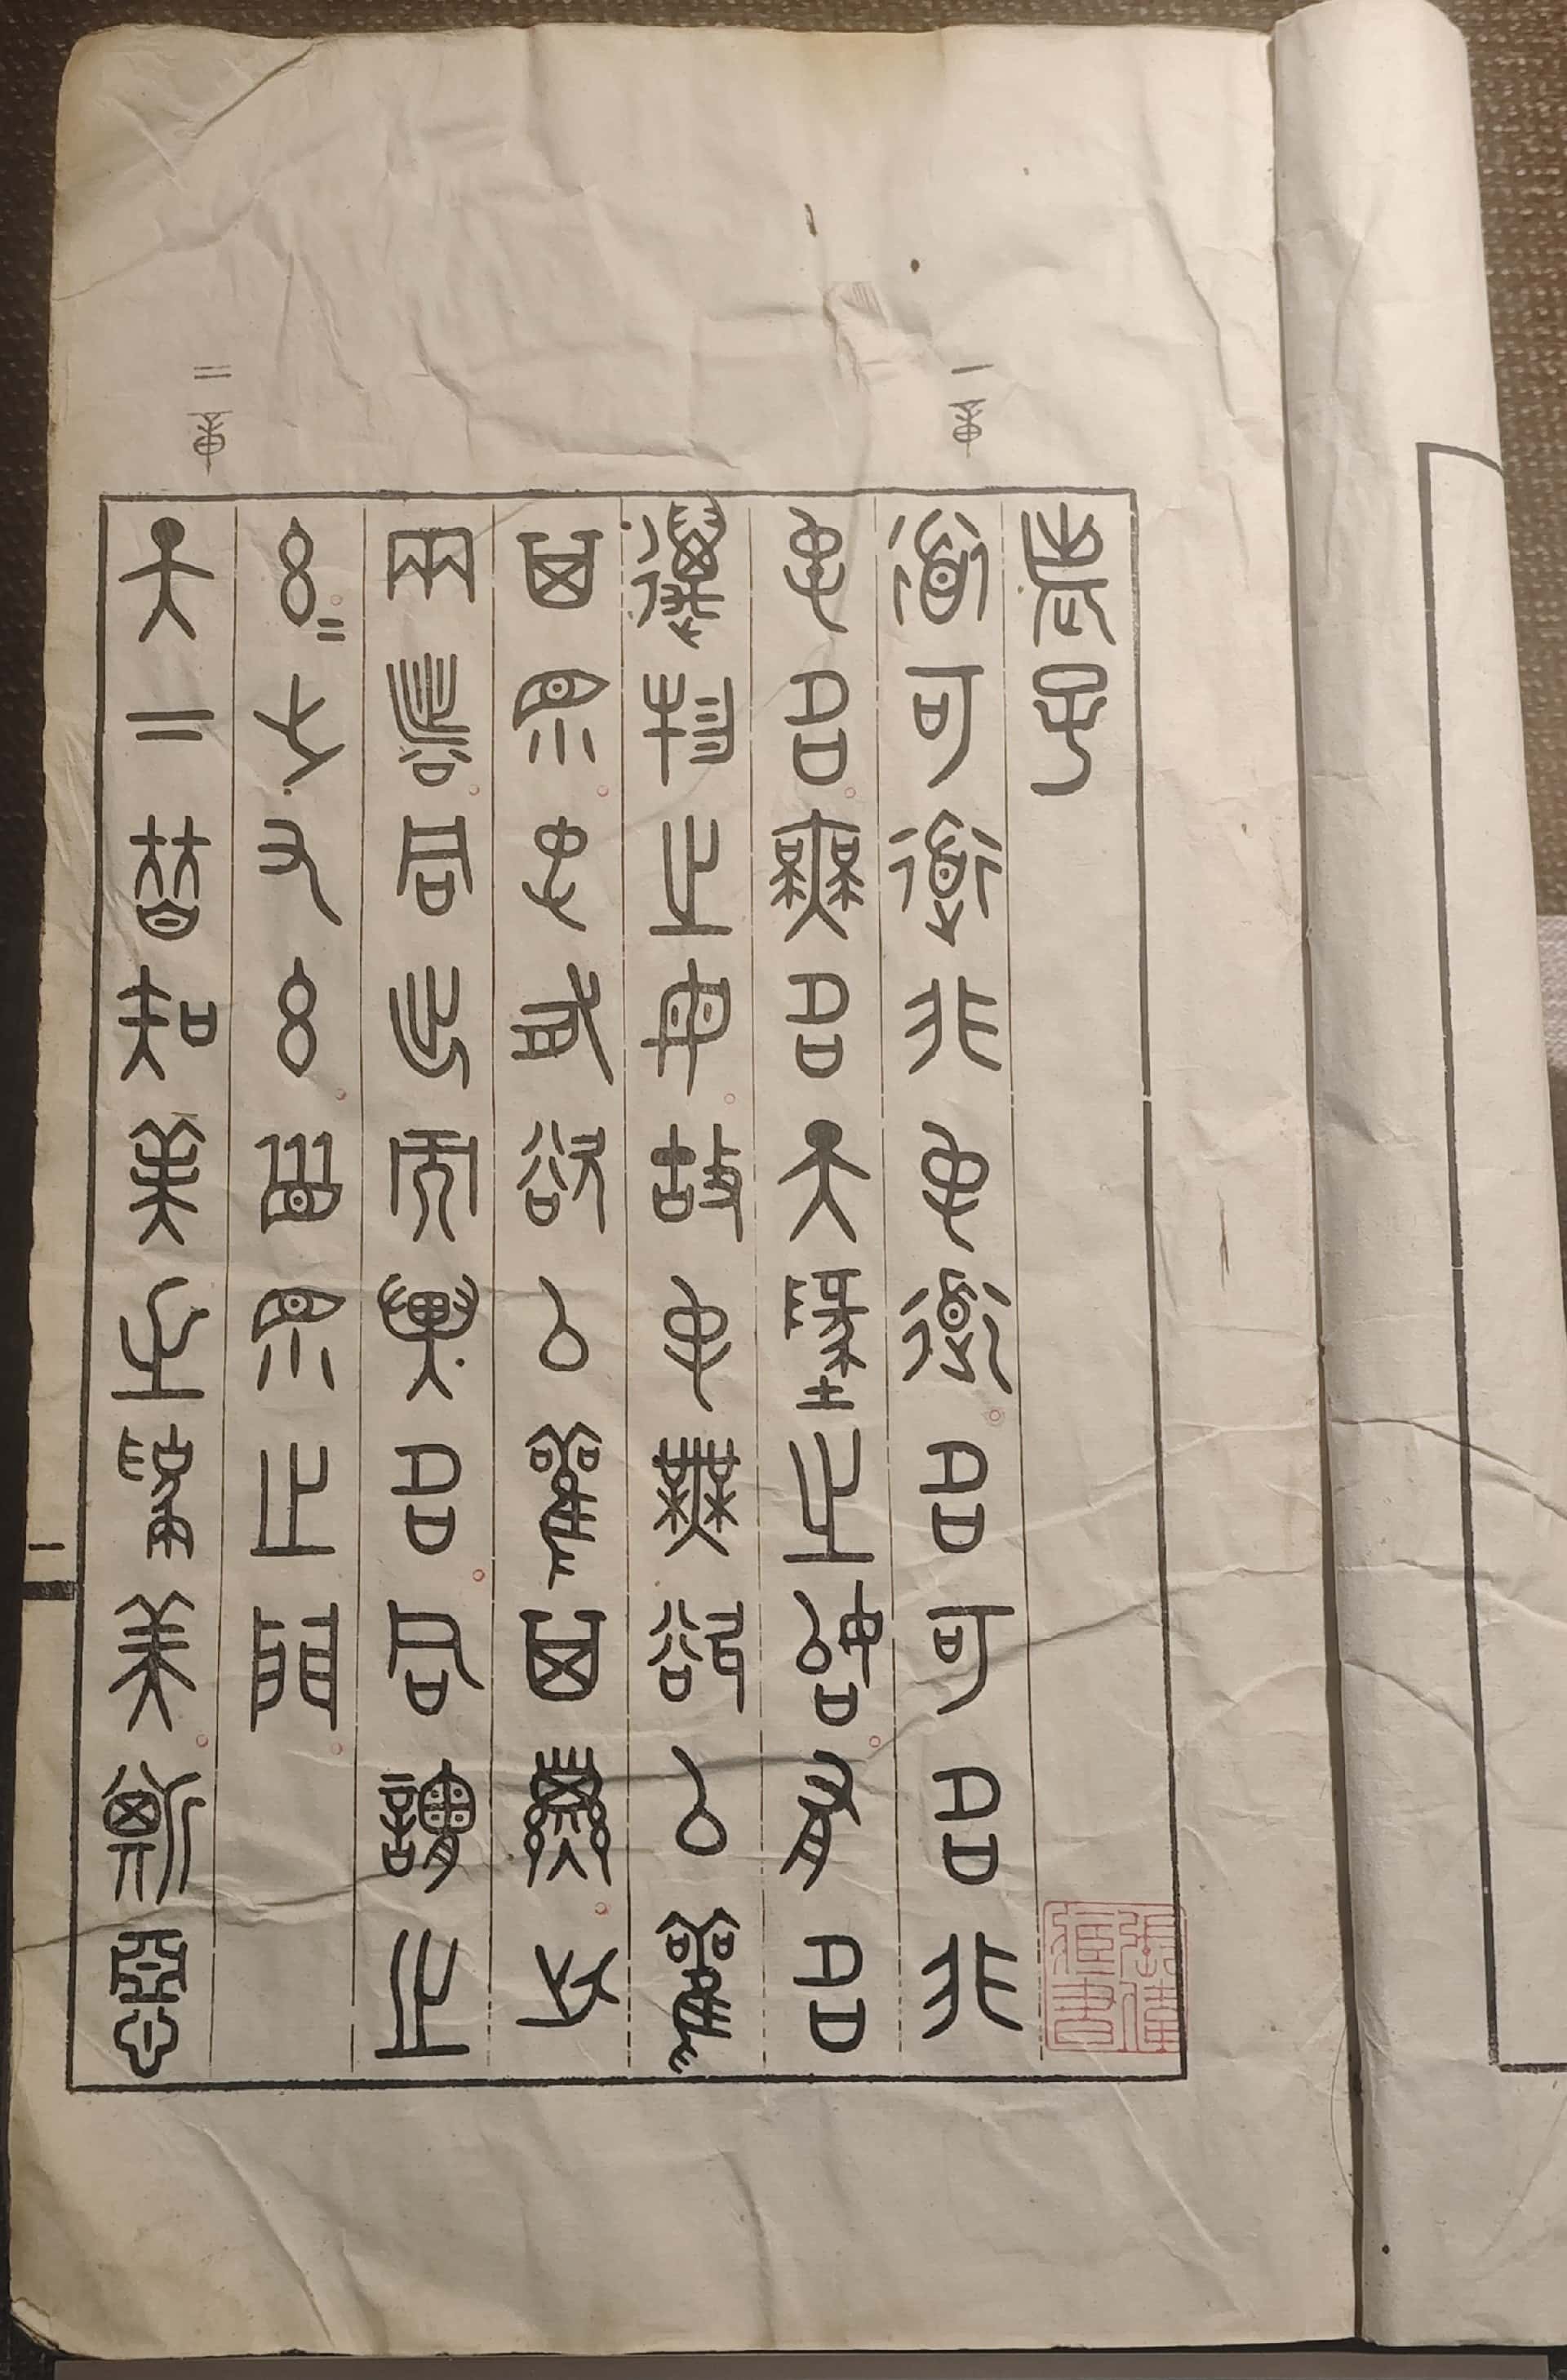 老子
一章
道可道非常道名可名非
常名無名天地之始有名
萬物之母故常無欲以觀
其眇常有欲以觀其徼此
兩者同出而異名同謂之
玄〃之又玄眾眇之門
二章
天下皆知美之為美斯惡
一